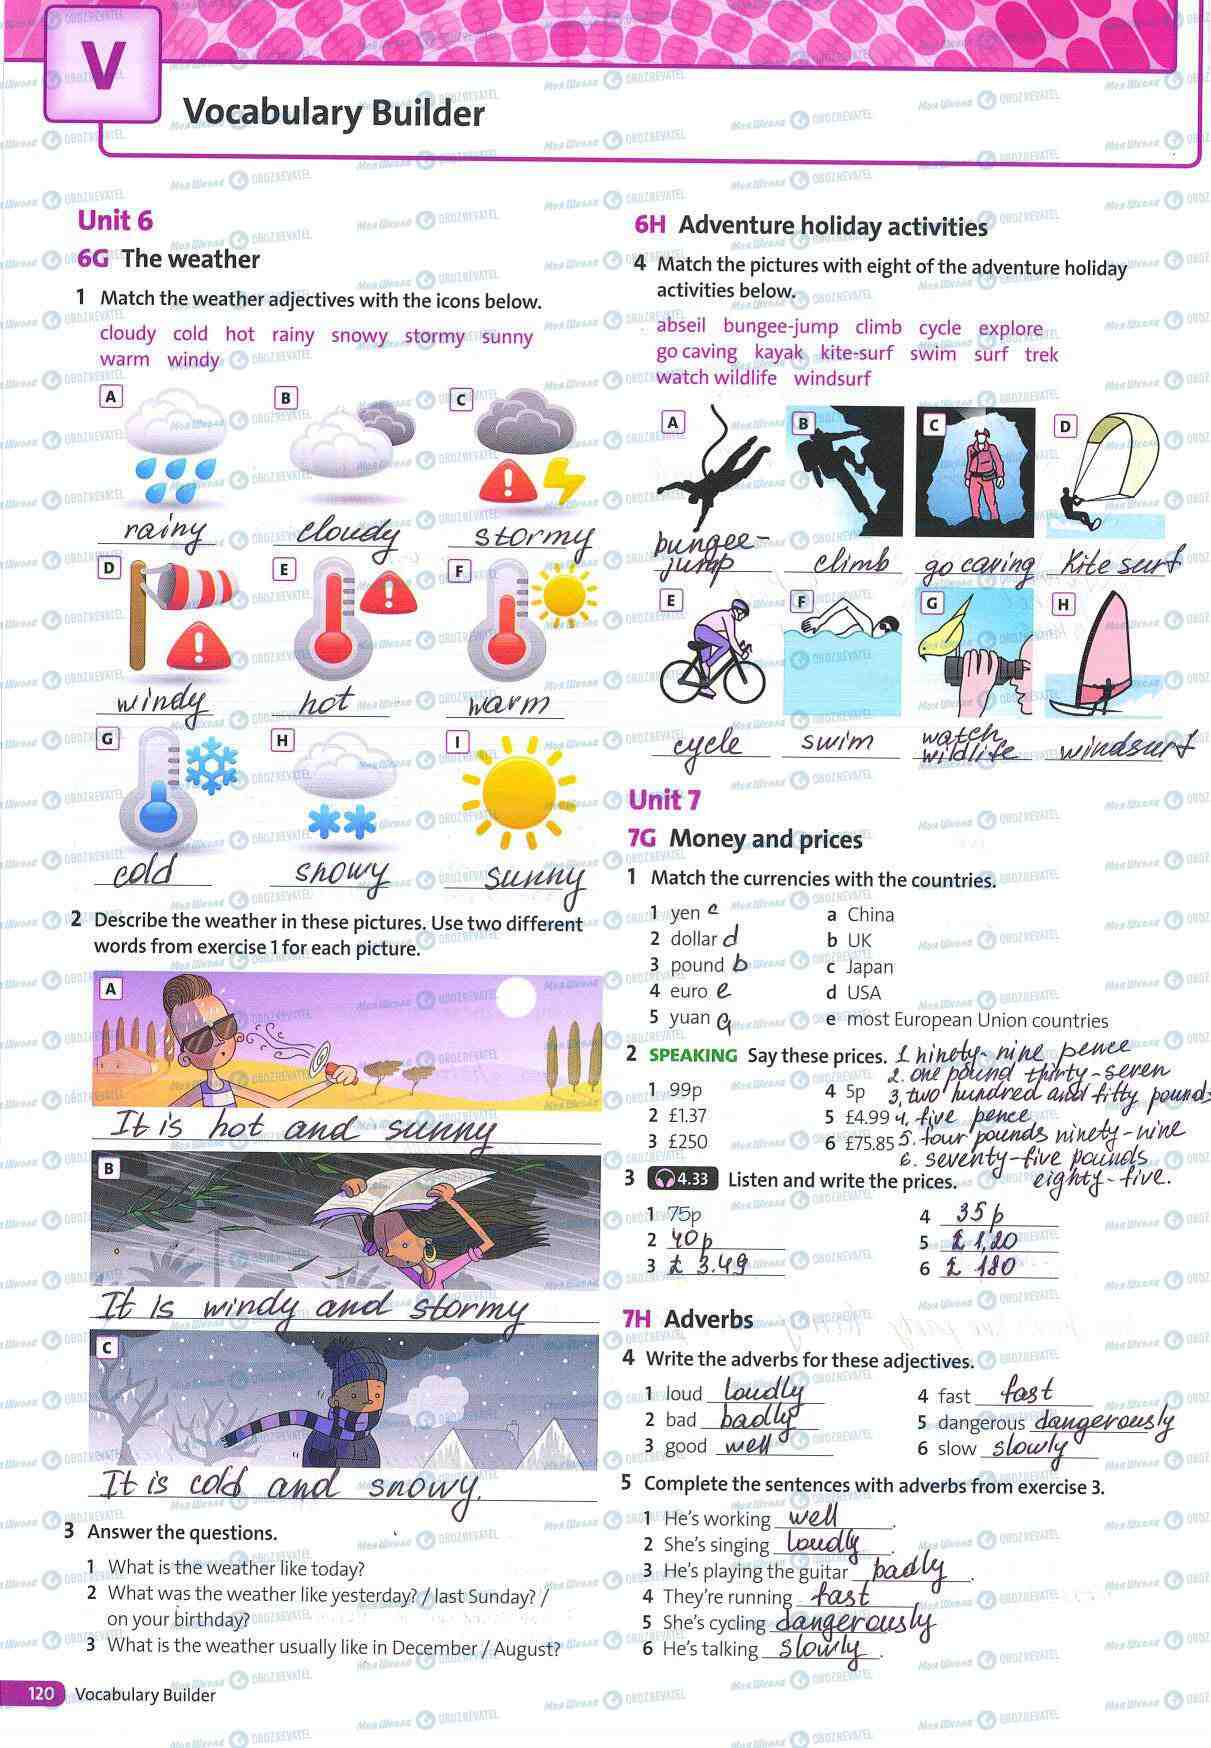 V
Vocabulary Builder
Unit 6
6G The weather
1 Match the weather adjectives with the icons below.
cloudy cold hot rainy snowy stormy sunny
warm windy
A
B
C
rainy
cloudy
stormy
D
E
F
windy
hot
warm
G
H
I
cold
snowy
sunny
2 Describe the weather in these pictures. Use two different
words from exercise 1 for each picture.
A
It is hot and sunny
B
It is windy and stormy
C
It is cold and snowy.
3 Answer the questions.
1 What is the weather like today?
2 What was the weather like yesterday? / last Sunday? /
on your birthday?
3 What is the weather usually like in December / August?
6H Adventure holiday activities
4 Match the pictures with eight of the adventure holiday
activities below.
abseil bungee-jump climb cycle explore
go caving kayak kite-surf swim surf trek
watch wildlife windsurf
A
B
C
D
bungee-
jump
climb
go caving
kite surf
E
F
G
H
cycle
swim
watch
wildlife
windsurf
Unit 7
7G Money and prices
1 Match the currencies with the countries.
1 yen c
2 dollar d
3 pound b
4 euro e
5 yuan a
a China
b UK
c Japan
d USA
e most European Union countries
2 SPEAKING Say these prices.
1 99p
2 £1.37
3 £250
4 5p
5 £4.99
6 £75.85
1 ninety-nine pence
2. one pound thirty-seven
3, two hundred and fifty pounds
4, five pence
5. four pounds ninety-nine
6. seventy-five pounds
eighty-five.
3 4.33 Listen and write the prices.
1 75p
2 40p
3 £ 3.49
4 35p
5 £ 1,20
6 £ 180
7H Adverbs
4 Write the adverbs for these adjectives.
1 loud loudly
2 bad badly
3 good well
4 fast fast
5 dangerous dangerously
6 slow slowly
5 Complete the sentences with adverbs from exercise 3.
1 He's working well.
2 She's singing loudly.
3 He's playing the guitar badly.
4 They're running fast
5 She's cycling dangerously
6 He's talking slowly.
120 Vocabulary Builder
Моя Школа OBOZREVATEL